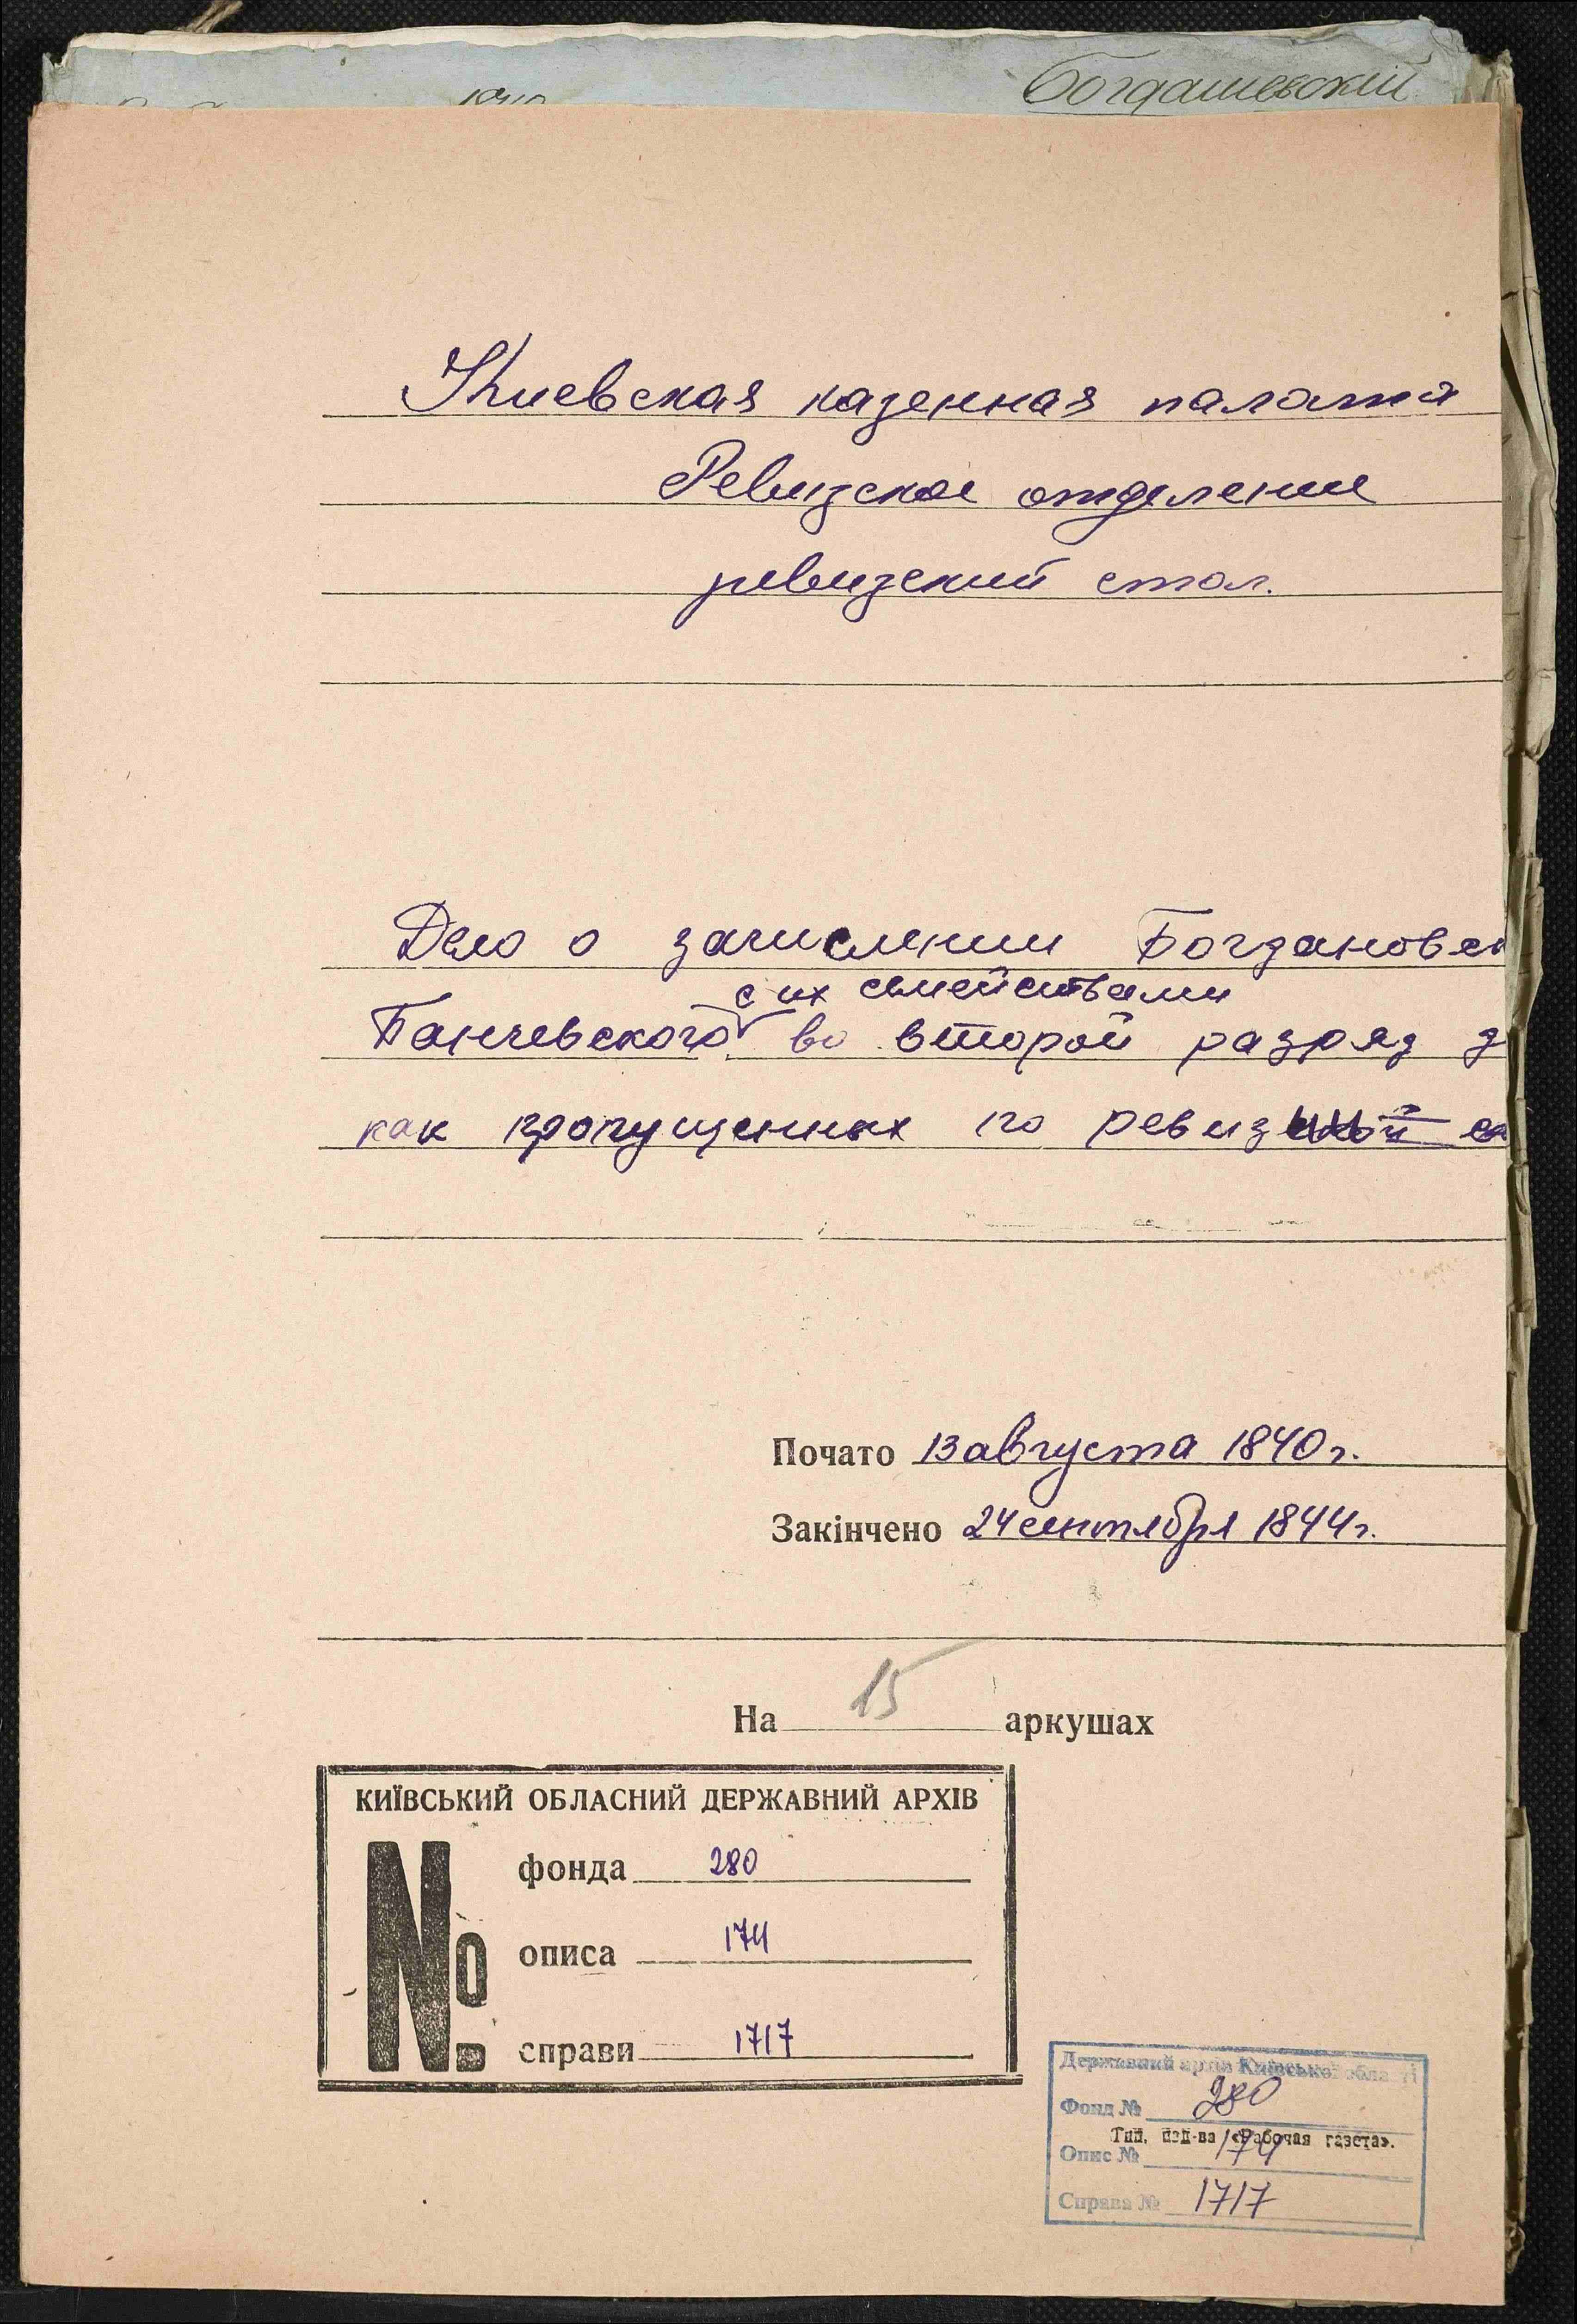 Богдашевский
Киевская казенная палата
Ревизское отделение
ревизский стол.
Дело о зачислении Богдановск
с их семействами
Банчевского во второй разряд
как пропущенных по ревиз
Почато 13 августа 1840 г.
Закінчено 24 сентября 1844 г.
На 15 аркушах
КИЇВСЬКИЙ ОБЛАСНИЙ ДЕРЖАВНИЙ АРХІВ
№
фонда 280
описа 174
справи 1717
Державний архів Київської області
Фонд № 280
Тип. изд-ва «Рабочая газета».
Опис № 174
Справа № 1717